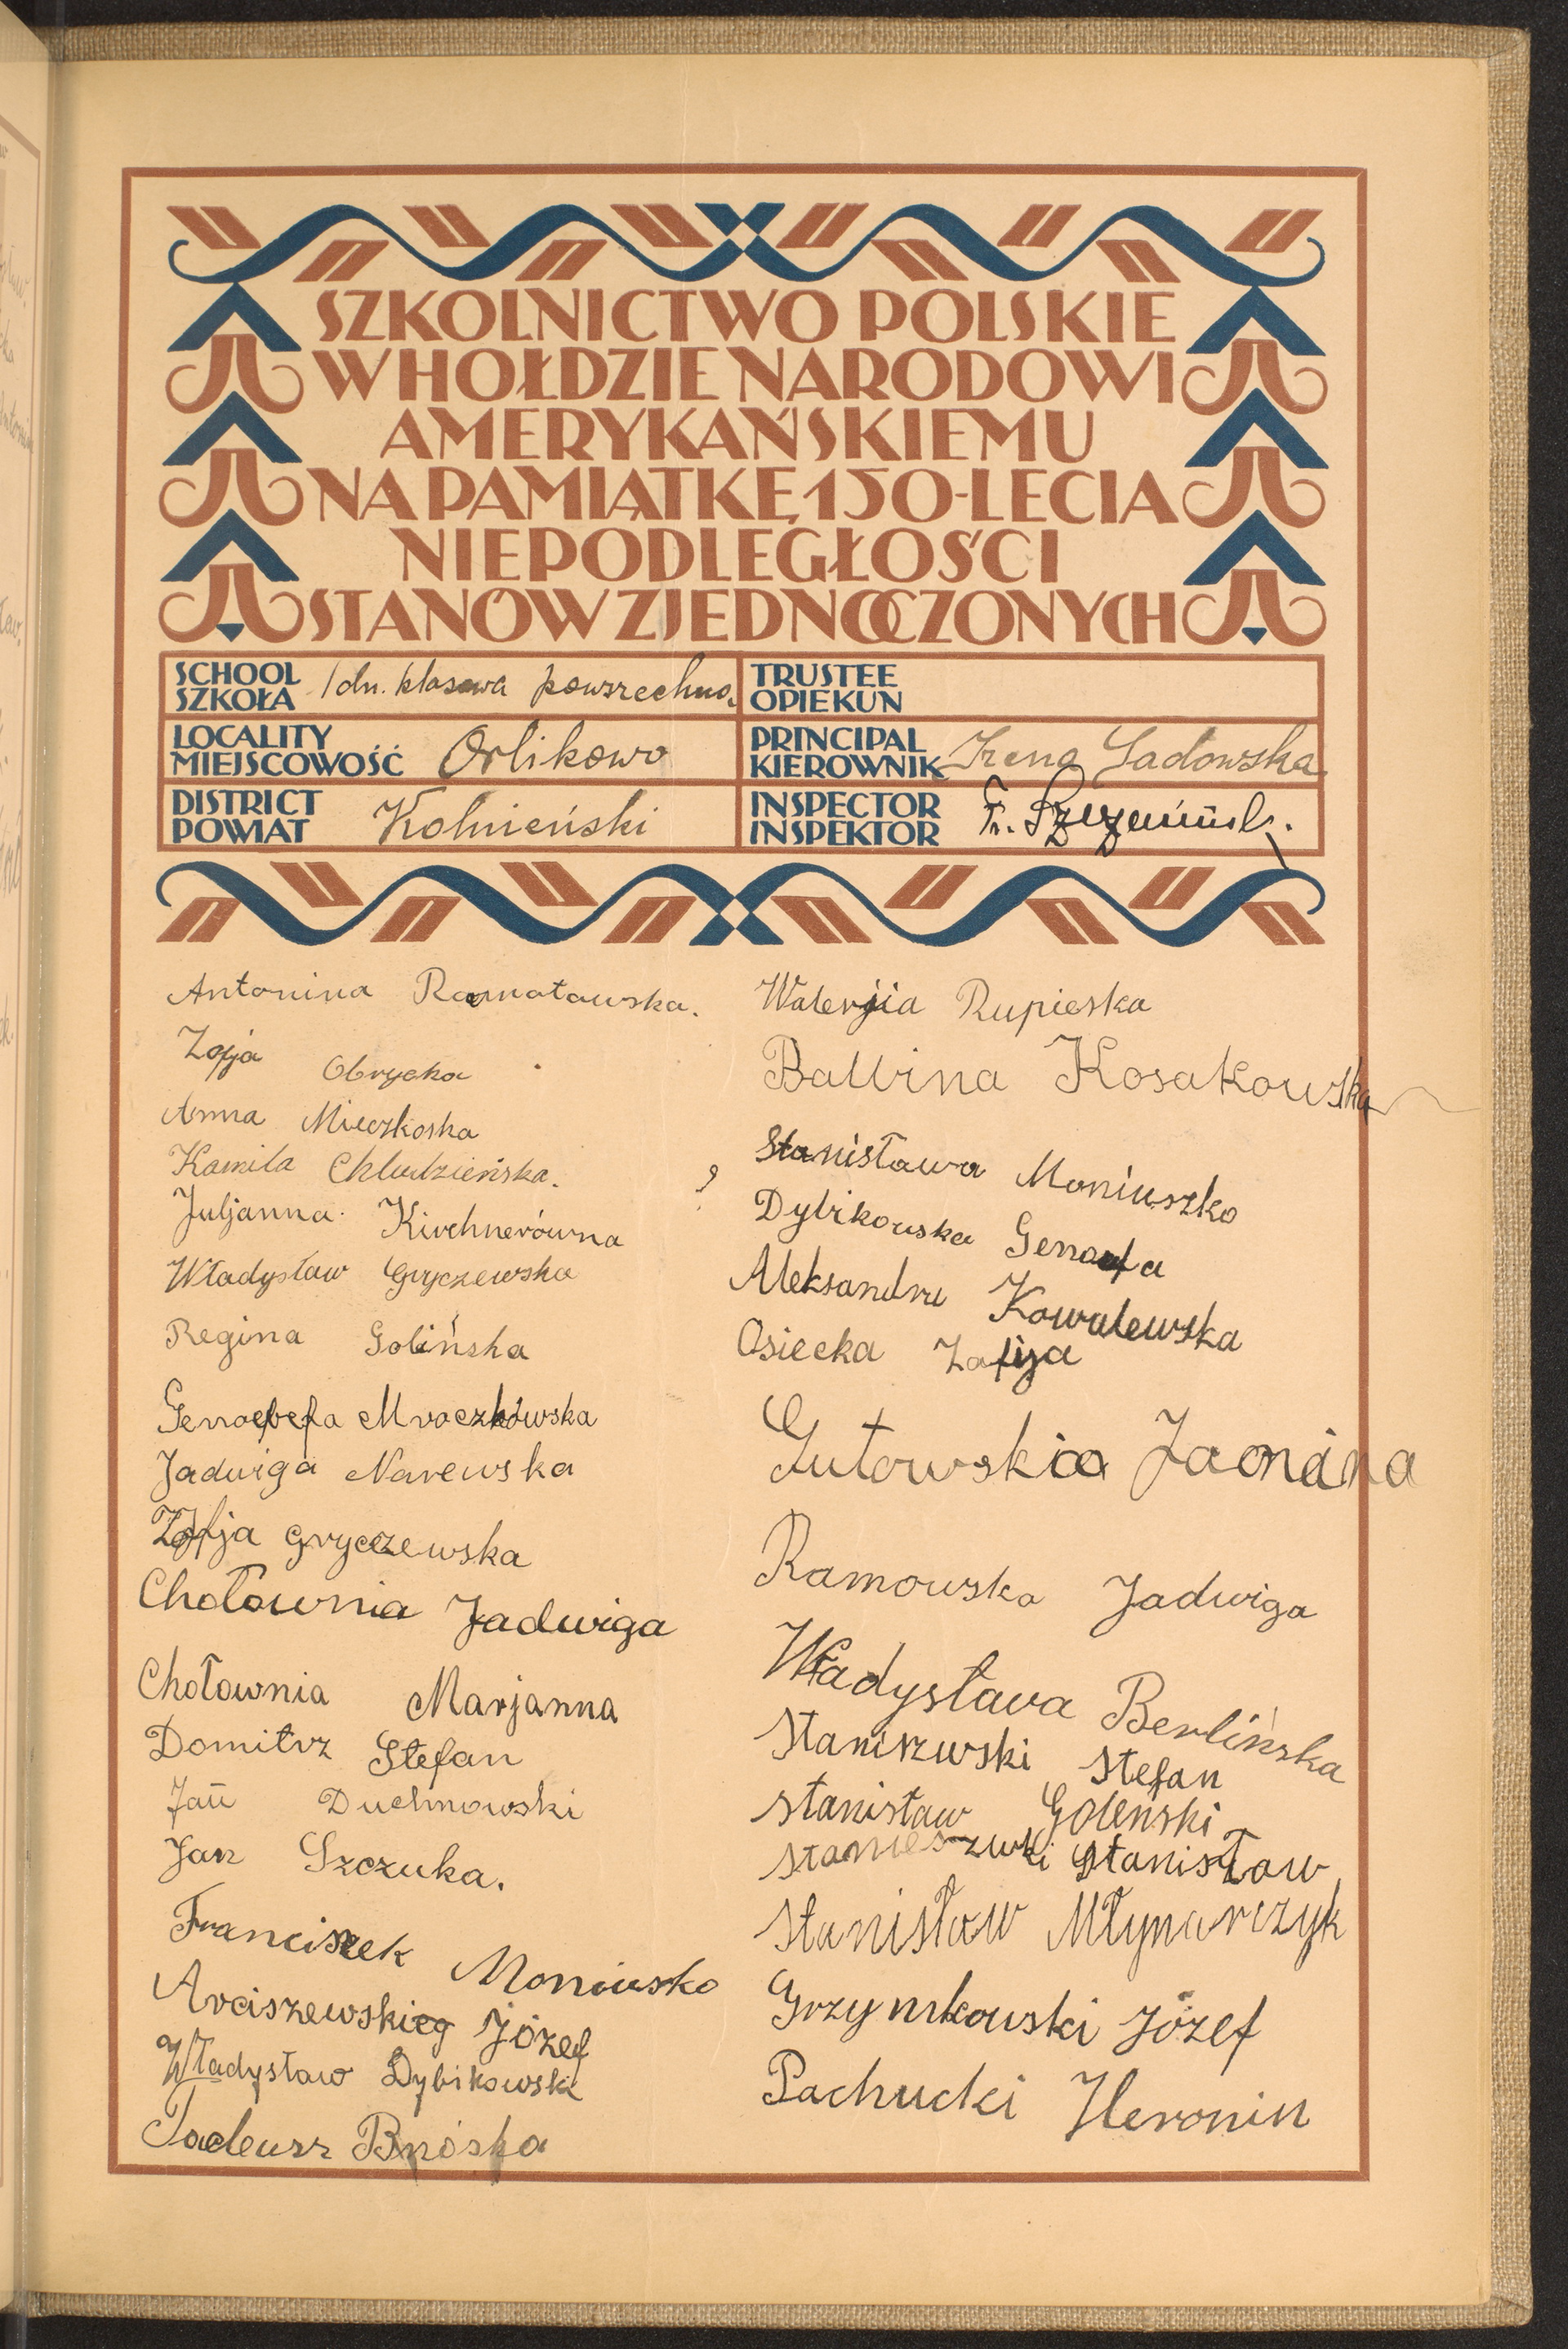 SZKOLNICTWO POLSKIE
W HOŁDZIE NARODOWI
AMERYKAŃSKIEMU
NA PAMIĄTKĘ 150-LECIA
NIEPODLEGŁOŚCI
STANÓW ZJEDNOCZONYCH
SCHOOL
SZKOŁA 1 dn. klasowa powszechna.
TRUSTEE
OPIEKUN
LOCALITY
MIEJSCOWOŚĆ Orlikowo
PRINCIPAL
KIEROWNIK Irena Sadowska
DISTRICT
POWIAT Kolnieński
INSPECTOR
INSPEKTOR Fr.
Antonina Ramotowska.
Zofja Obrycka
Anna Mieczkoska
Kamila Chludzieńska.
Juljanna Kirchnerówna
Władysław Gryczewska
Regina Golińska
Genoefefa Mroczkówska
Jadwiga Narewska
Zofja Gryczewska
Chołownia Jadwiga
Chołownia Marjanna
Domitrz Stefan
Jan Duchnowski
Jan Szczuka.
Franciszek Moniusko
Arciszewski Józef
Władysław Dybikowski
Tadeusz
Walerjia Rupieska
Balbina Kosakowska
Stanisława Moniuszko
Dybikowska Genoefa
Aleksandra Kowalewska
Osiecka Zofija
Gutowska Janina
Ramowska Jadwiga
Władysława Berlińska
Staniszwski Stefan
Stanisław Goleński
Stanieszwski Stanisław
Stanisław Młynarczyk
Grzymkowski Józef
Pachucki Heronin